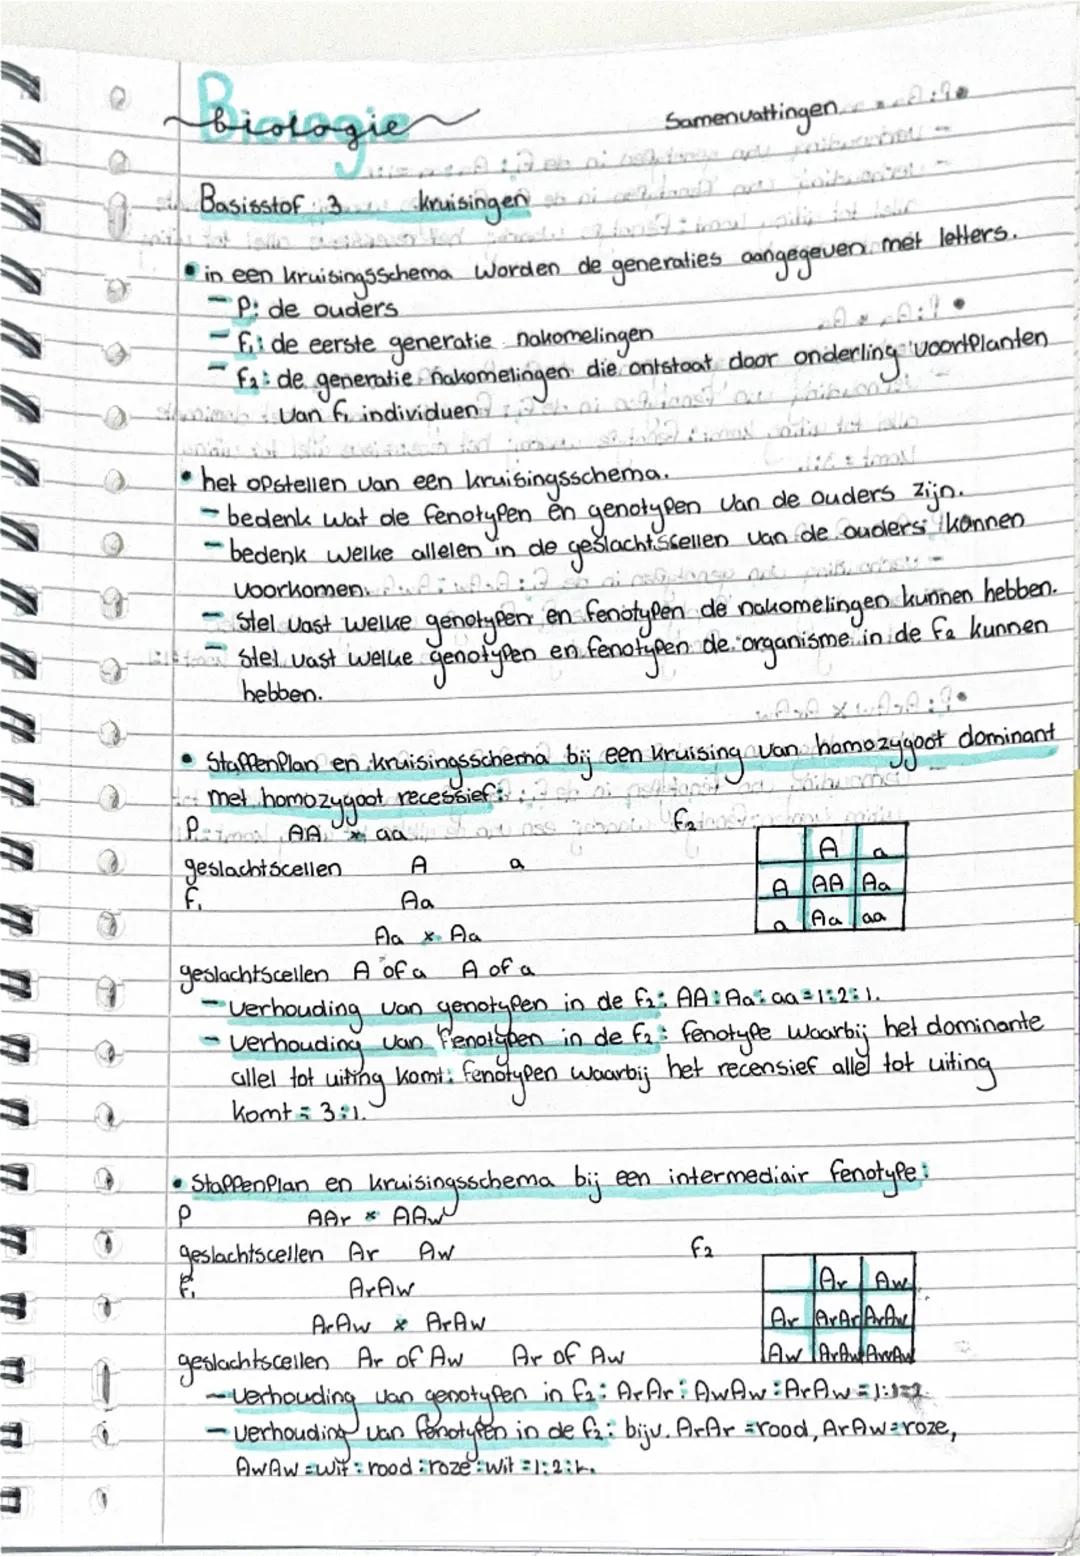 Biologie
biologie
Samenvattingen
Basisstof 3 kruisingen
• in een kruisingsschema worden de generaties aangegeven met letters.
- P: de ouders
- F₁: de eerste generatie nakomelingen
- F₂: de generatie nakomelingen die ontstaat door onderling voortplanten
van F₁ individuen
• het opstellen van een kruisingsschema.
- bedenk wat de fenotypen en genotypen van de ouders zijn.
- bedenk welke allelen in de geslachtscellen van de ouders kannen
voorkomen.
- Stel vast welke genotypen en fenotypen de nakomelingen kunnen hebben.
- Stel vast welke genotypen en fenotypen de organisme in de F₂ kunnen
hebben.
• Stappenplan en kruisingsschema bij een kruising van homozygoot dominant
met homozygoot recessief:
P AA x aa F₂
geslachtscellen A a
F₁ Aa
Aa x Aa
A a
A AA Aa
a Aa aa
geslachtscellen A of a A of a
- Verhouding van genotypen in de F₂: AA : Aa : aa = 1:2:1.
- Verhouding van fenotypen in de F₂: fenotype waarbij het dominante
allel tot uiting komt: fenotypen waarbij het recensief allel tot uiting
komt = 3:1.
• Stappenplan en kruisingsschema bij een intermediair fenotype:
P AAr x AAw
geslachtscellen Ar Aw F₂
F₁ ArAw
ArAw x ArAw
Ar Aw
Ar ArAr ArAw
Aw ArAw AwAw
geslachtscellen Ar of Aw Ar of Aw
- Verhouding van genotypen in F₂: ArAr : AwAw : ArAw = 1:1:2.
- Verhouding van fenotypen in de F₂: bijv. ArAr = rood, ArAw = roze,
AwAw = wit : rood : roze : wit = 1:2:1.